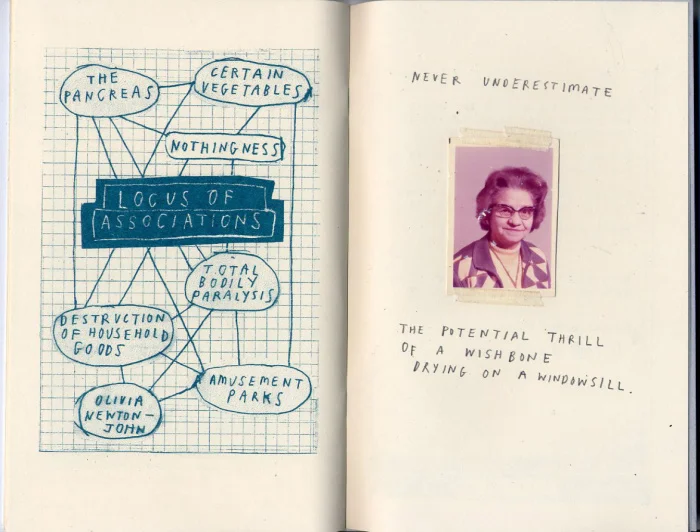 THE
PANCREAS
CERTAIN
VEGETABLES
NOTHINGNESS
LOCUS OF
ASSOCIATIONS
TOTAL
BODILY
PARALYSIS
DESTRUCTION
OF HOUSEHOLD
GOODS
AMUSEMENT
PARKS
OLIVIA
NEWTON-
JOHN
NEVER UNDERESTIMATE
THE POTENTIAL THRILL
OF A WISHBONE
DRYING ON A WINDOWSILL.